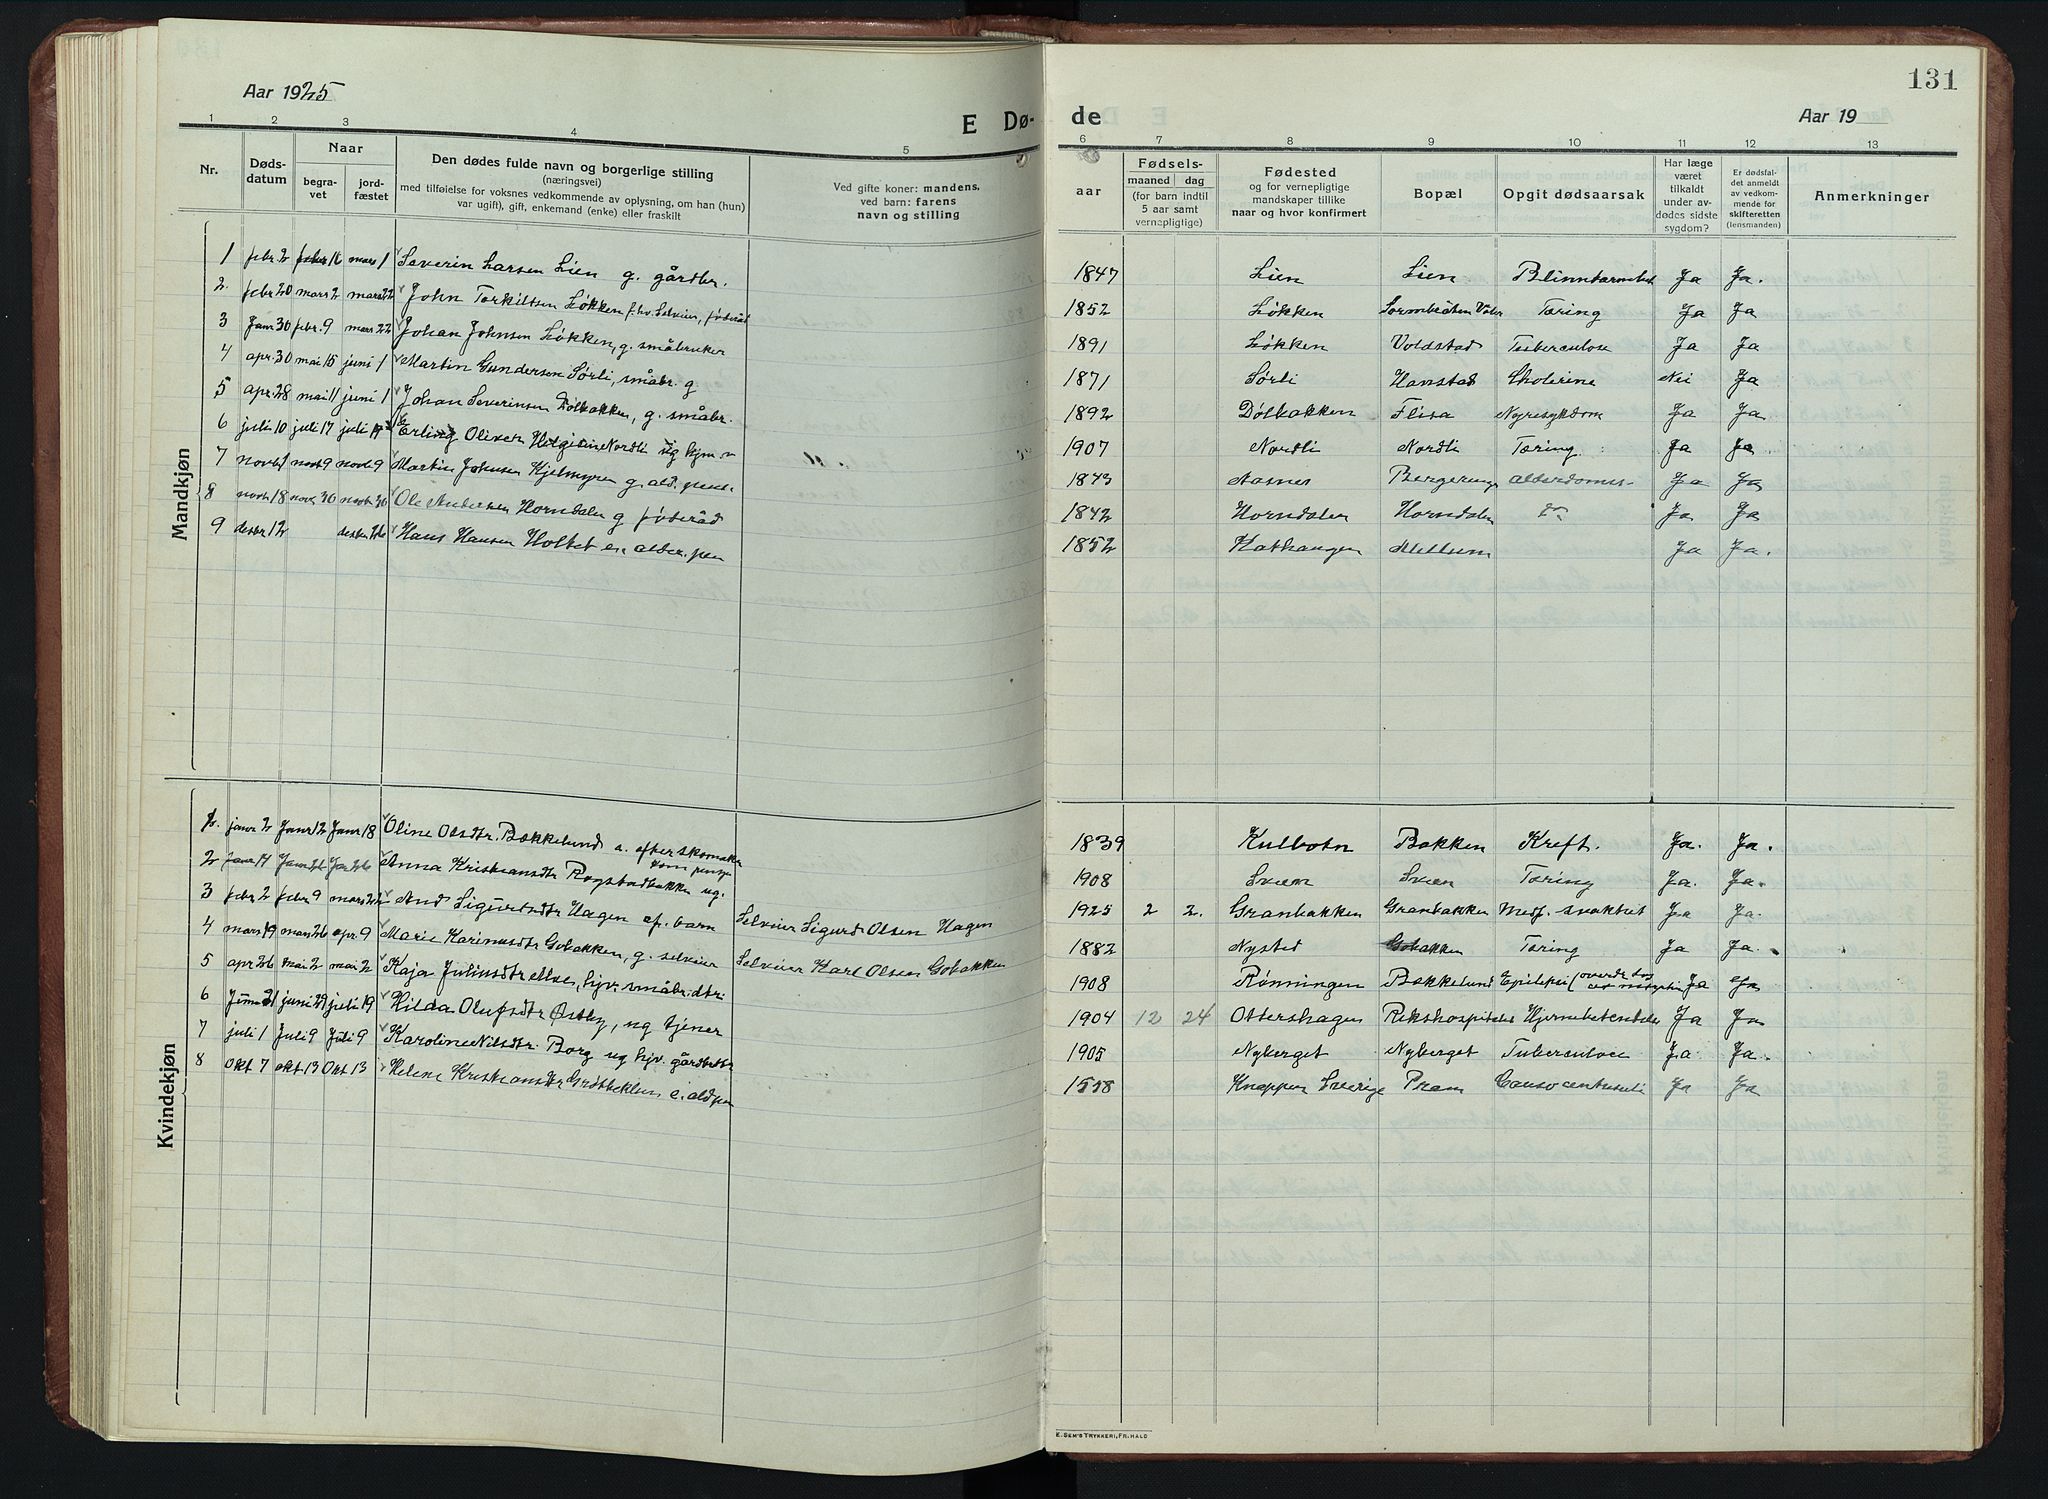 Aar 1925
E Dø-
1 2 3 4 5
Nr.
Døds-
datum
Naar
begra-
vet
jord-
fæstet
Den dødes fulde navn og borgerlige stilling
(næringsvei)
med tilføielse for voksnes vedkommende av oplysning, om han (hun)
var ugift), gift, enkemand (enke) eller fraskilt
Ved gifte koner: mandens,
ved barn: farens
navn og stilling
Mandkjøn
1 febr. 2 16 mars 1 Severin Larsen Lien g. gårdbr.
2. febr 20 mars 2 mars 22 John Torkiltsen Løkken f.hv. Selveier, føderåd
3 Janr 30 febr. 9 mars 22 Johan Johnsen Løkken, g. småbruker
4 apr. 30 mai 15 juni 1 Martin Gundersen Sørli, småbr. g
5 apr. 28 mai 11 juni 1 Johan Severinsen Dølbakken, g. småbr.
6 juli 10 juli 17 juli 17 Erling Oliver Nordli ug hjm.
7 novbr 1 novb 9 novb. 9 Martin Johnsen Kjelmyren g. ald. pens.
8 novb. 18 nov. 30 novb 30 Ole Andersen Horndalen g føderåd
9 desbr 12 desbr 26 Hans Hansen Holtet e. alder. pen
Kvindekjøn
1. janr 2 Janr 12 Janr 18 Oline Olsdtr. Bækkelund a. efter skomaker
kom. penge
2 Janr 14 Janr 26 Jar 26 Anna Kristiansdtr Rogstadbakken ug.
3 febr 2 febr 9 mars 22 Aud Sigurdsdtr Hagen ef. barn Selveier Sigurd Olsen Hagen
4 mars 19 mars 26 apr. 9 Marie Karinusdtr Gobakken, g. selveier Selveier Karl Olsen Gobakken
5 apr 26 mai 2 mai 2 Kaja Juliusdtr Moe, hjv. småbr. dtr.
6 Juni 21 juni 29 juli 19 Hilda Olufsdtr Østby, ug tjener
7 juli 1 Juli 9 Juli 9 Karoline Nilsdtr. Borg ug hjv. gårdbrdtr
8 Okt 7 okt 13 Okt 13 Helene Kristiansdtr e. ald pen
131
de
Aar 19
6 7 8 9 10 11 12 13
aar
Fødsels-
maaned dag
(for barn indtil
5 aar samt
vernepligtige)
Fødested
og for vernepligtige
mandskaper tillike
naar og hvor konfirmert
Bopæl
Opgit dødsaarsak
Har læge
været
tilkaldt
under av-
dødes sidste
sygdom?
Er dødsfal-
det anmeldt
av vedkom-
mende for
skifteretten
(lensmanden)
Anmerkninger
1847 Lien Lien Blinntarmbet Ja Ja.
1852 Løkken Sormbråten Våler Tæring Ja Ja
1891 Løkken Voldstad Tuberculose Ja Ja
1871 Sørli Hanstad Cholerine Nei Ja
1892 Dølbakken Flisa Nyresykdom Ja Ja
1907 Nordli Nordli Tæring Ja Ja
1843 Aasnes Bergerenga alderdomss. Ja Ja
1842 Horndalen Horndalen do Ja Ja
1852 Kathaugen Mellum Ja Ja.
1839 Kulbotn Bakken Kreft. Ja. Ja.
1908 Sveen Sveen Tæring Ja. Ja.
1925 2 2. Granbakken Granbakken Medf. svakhet Ja Ja.
1882 Nysted Gobakken Tæring Ja Ja.
1908 Rønningen Bækkelund Epilepsi Ja Ja
1904 12 24 Ottershagen Rikshospitalet Hjernebetendelse Ja Ja
1905 Nyberget Nyberget Tuberculose Ja. Ja.
1858 Knappen Sverige Pram Ja Ja
E. SEM'S TRYKKERI, FR.HALD